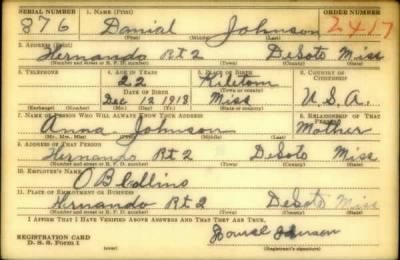 SERIAL NUMBER 1. NAME (Print) ORDER NUMBER
876 Danial Johnson 2417
(First) (Middle) (Last)
2. ADDRESS (Print)
Hernando Rt 2 DeSoto Miss
(Number and street or R. F. D. number) (Town) (County) (State)
3. TELEPHONE 4. AGE IN YEARS 5. PLACE OF BIRTH 6. COUNTRY OF CITIZENSHIP
22
DATE OF BIRTH
Dec 12 1918 Miss U.S.A.
(Exchange) (Number) (Mo.) (Day) (Yr.) (State or country)
7. NAME OF PERSON WHO WILL ALWAYS KNOW YOUR ADDRESS 8. RELATIONSHIP OF THAT PERSON
Anna Johnson Mother
(Mr., Mrs., Miss) (First) (Middle) (Last)
9. ADDRESS OF THAT PERSON
Hernando Rt 2 DeSoto Miss
(Number and street or R. F. D. number) (Town) (County) (State)
10. EMPLOYER'S NAME
O B Collins
11. PLACE OF EMPLOYMENT OR BUSINESS
Hernando Rt 2 DeSoto Miss
(Number and street or R. F. D. number) (Town) (County) (State)
I AFFIRM THAT I HAVE VERIFIED ABOVE ANSWERS AND THAT THEY ARE TRUE.
REGISTRATION CARD
D. S. S. Form 1
(over) (Registrant's signature)